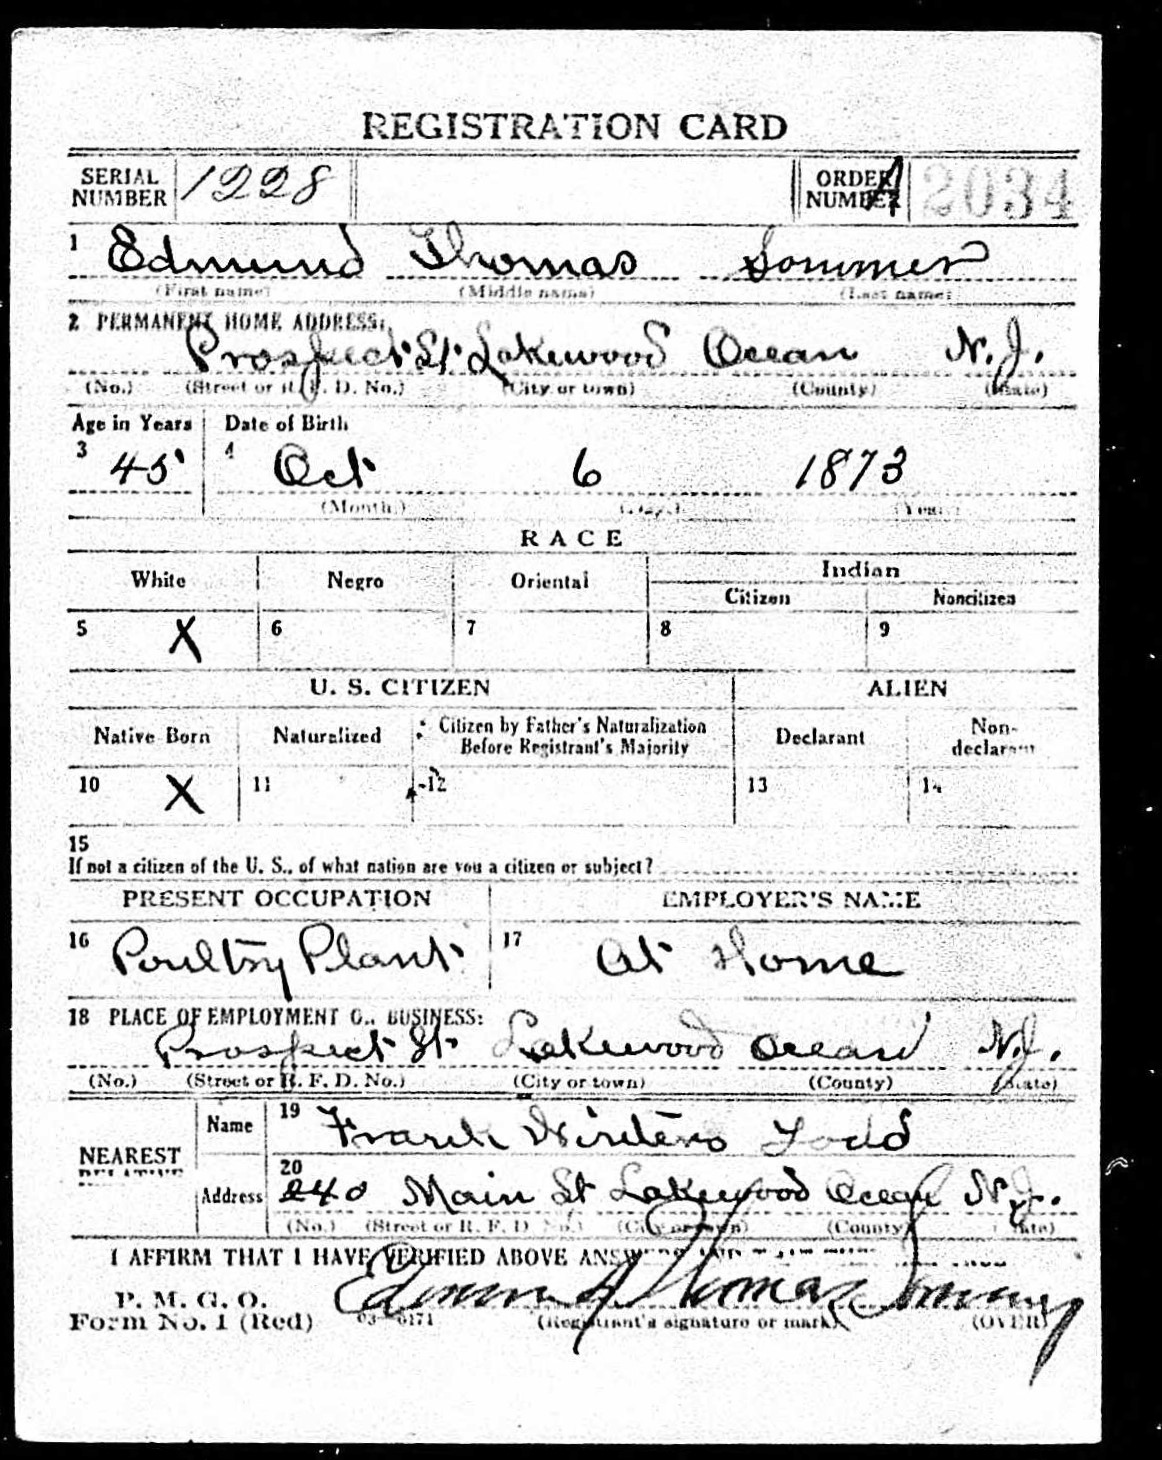 REGISTRATION CARD
SERIAL NUMBER 1228 ORDER NUMBER A 2034
1 Edmund Thomas Sommer
(First name) (Middle name) (Last name)
2 PERMANENT HOME ADDRESS:
Prospect St Lakewood Ocean N.J.
(No.) (Street or R. F. D. No.) (City or town) (County) (State)
Age in Years Date of Birth
3 45 4 Oct 6 1873
(Month.) (Day.) (Year.)
RACE
White Negro Oriental Indian
Citizen Noncitizen
5 X 6 7 8 9
U. S. CITIZEN ALIEN
Native Born Naturalized Citizen by Father's Naturalization Before Registrant's Majority Declarant Non-declarant
10 X 11 12 13 14
15
If not a citizen of the U. S., of what nation are you a citizen or subject?
PRESENT OCCUPATION EMPLOYER'S NAME
16 Poultry Plant 17 At Home
18 PLACE OF EMPLOYMENT OR BUSINESS:
Prospect St Lakewood Ocean N.J.
(No.) (Street or R. F. D. No.) (City or town) (County) (State)
NEAREST RELATIVE
Name 19 Frank Todd
Address 20 240 Main St Lakewood Ocean N.J.
(No.) (Street or R. F. D. No.) (City or town) (County) (State)
I AFFIRM THAT I HAVE VERIFIED ABOVE ANSWERS AND
P. M. G. O.
Form No. 1 (Red) 03—6171 (Registrant's signature or mark) (OVER)
Edmund Thomas Sommer